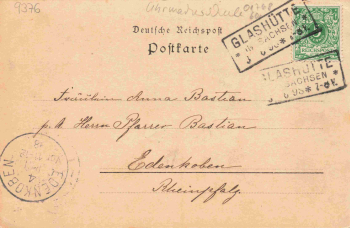 9376
Deutsche Reichspost
Postkarte
GLASHÜTTE
SACHSEN
GLASHÜTTE
SACHSEN
Fräulein Anna Bastian
p. A. Herrn Pfarrer Bastian
Edenkoben
Rheinpfalz.
EDENKOBEN